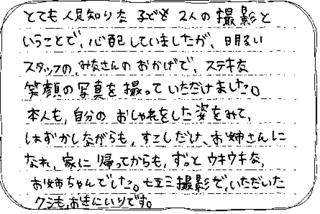 とても人見知りな子ども2人の撮影と
いうことで、心配していましたが、明るい
スタッフの、みなさんのおかげで、ステキな
笑顔の写真を撮っていただけました。
本人も、自分のおしゃれをした姿をみて、
はずかしながらも、すこしだけ、お姉さんに
なれ、家に帰ってからも、ずっとウキウキな、
お姉ちゃんでした。七五三撮影で、いただいた
クシも、お気にいりです。